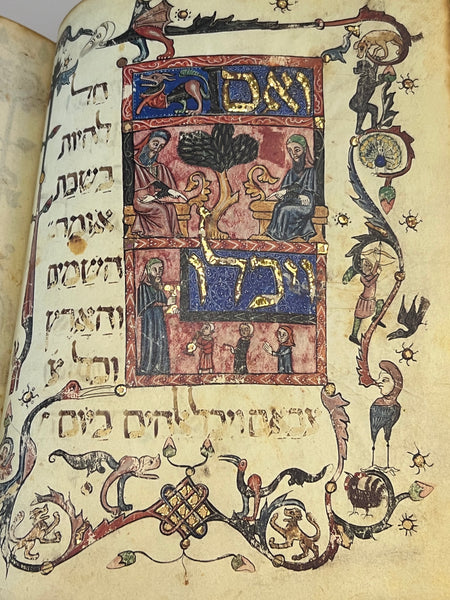 ואם
חל
להיות
בשבת
אומר
ויכלו
השמים
והארץ
וכל
צבאם ויכל אלהים ביום